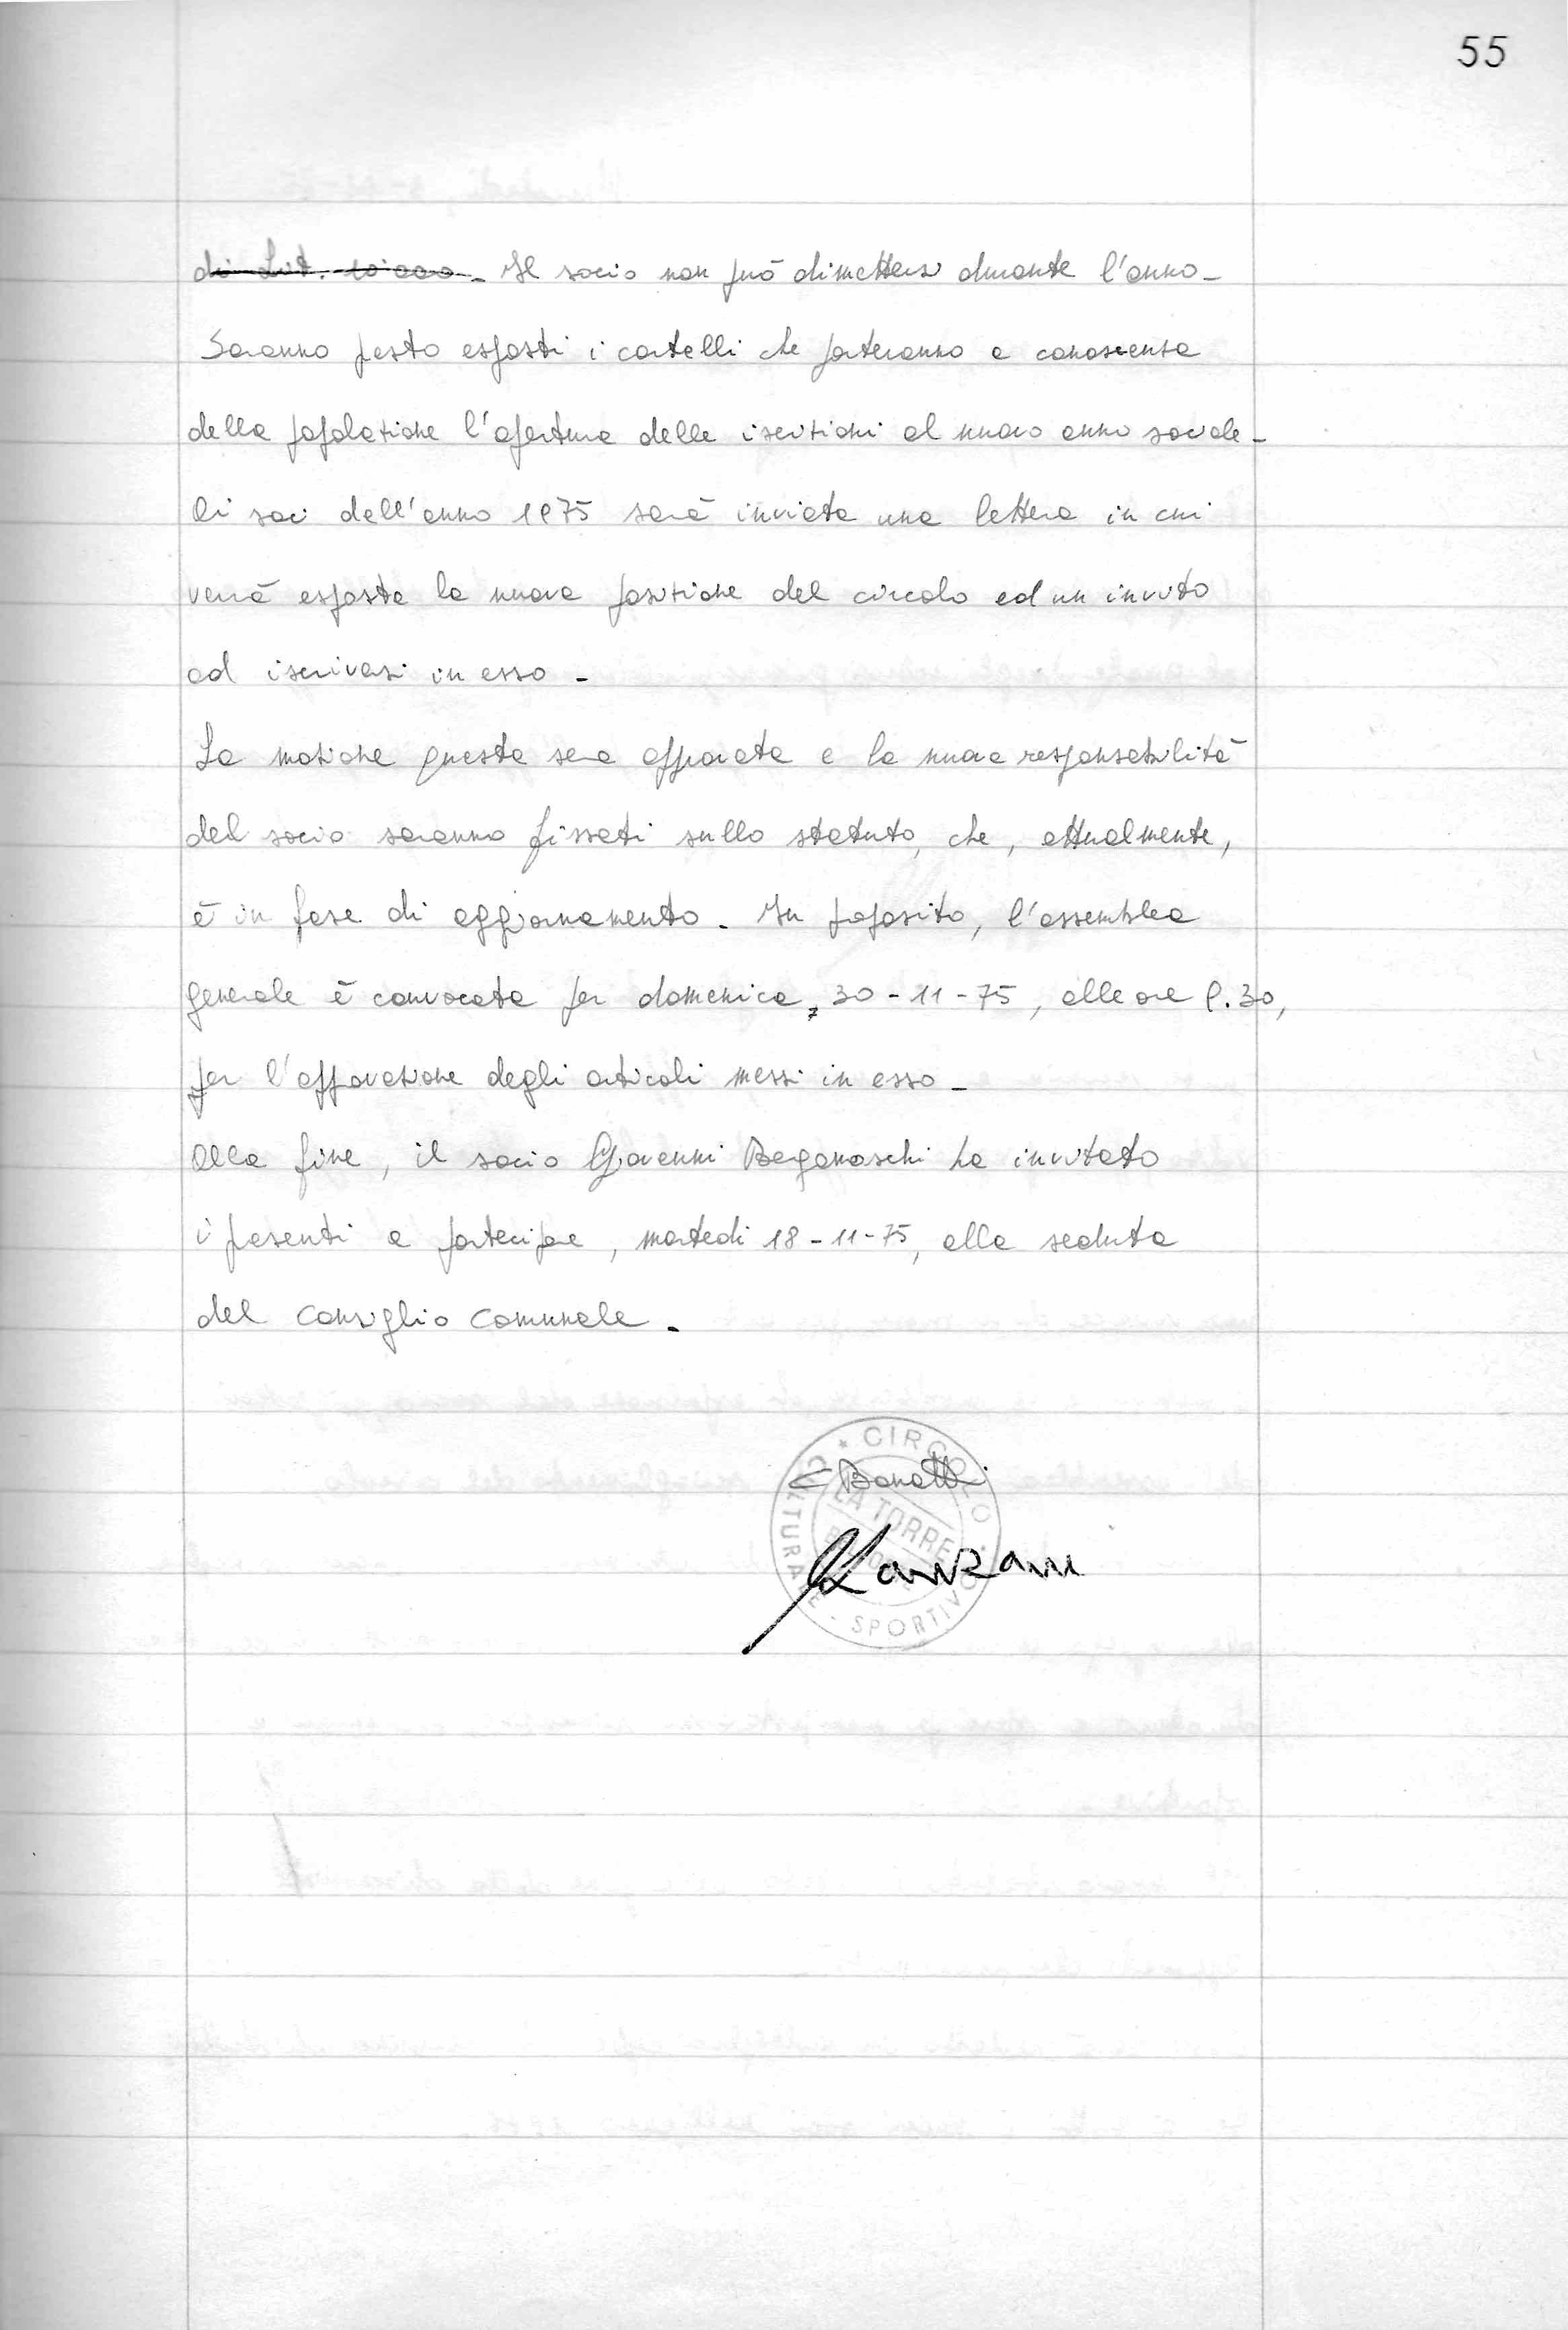 55
di Lit. 10.000 - Il socio non può dimettersi durante l'anno -
Saranno presto esposti i cartelli che porteranno a conoscenza
della popolazione l'apertura delle iscrizioni al nuovo anno sociale -
Ai soci dell'anno 1975 sarà inviata una lettera in cui
verrà esposta la nuova posizione del circolo ed un invito
ad iscriversi in esso -
La mozione questa sera approvata e la nuova responsabilità
del socio saranno fissati sullo statuto, che, attualmente,
è in fase di aggiornamento. In proposito, l'assemblea
generale è convocata per domenica, 30-11-75, alle ore 9.30,
per l'approvazione degli articoli messi in esso -
Alla fine, il socio Giovanni Bergamaschi ha invitato
i presenti a partecipare, martedì 18-11-75, alla seduta
del Consiglio Comunale.
CIRCOLO
Bonetti
LA TORRE
CULTURALE - SPORTIVO